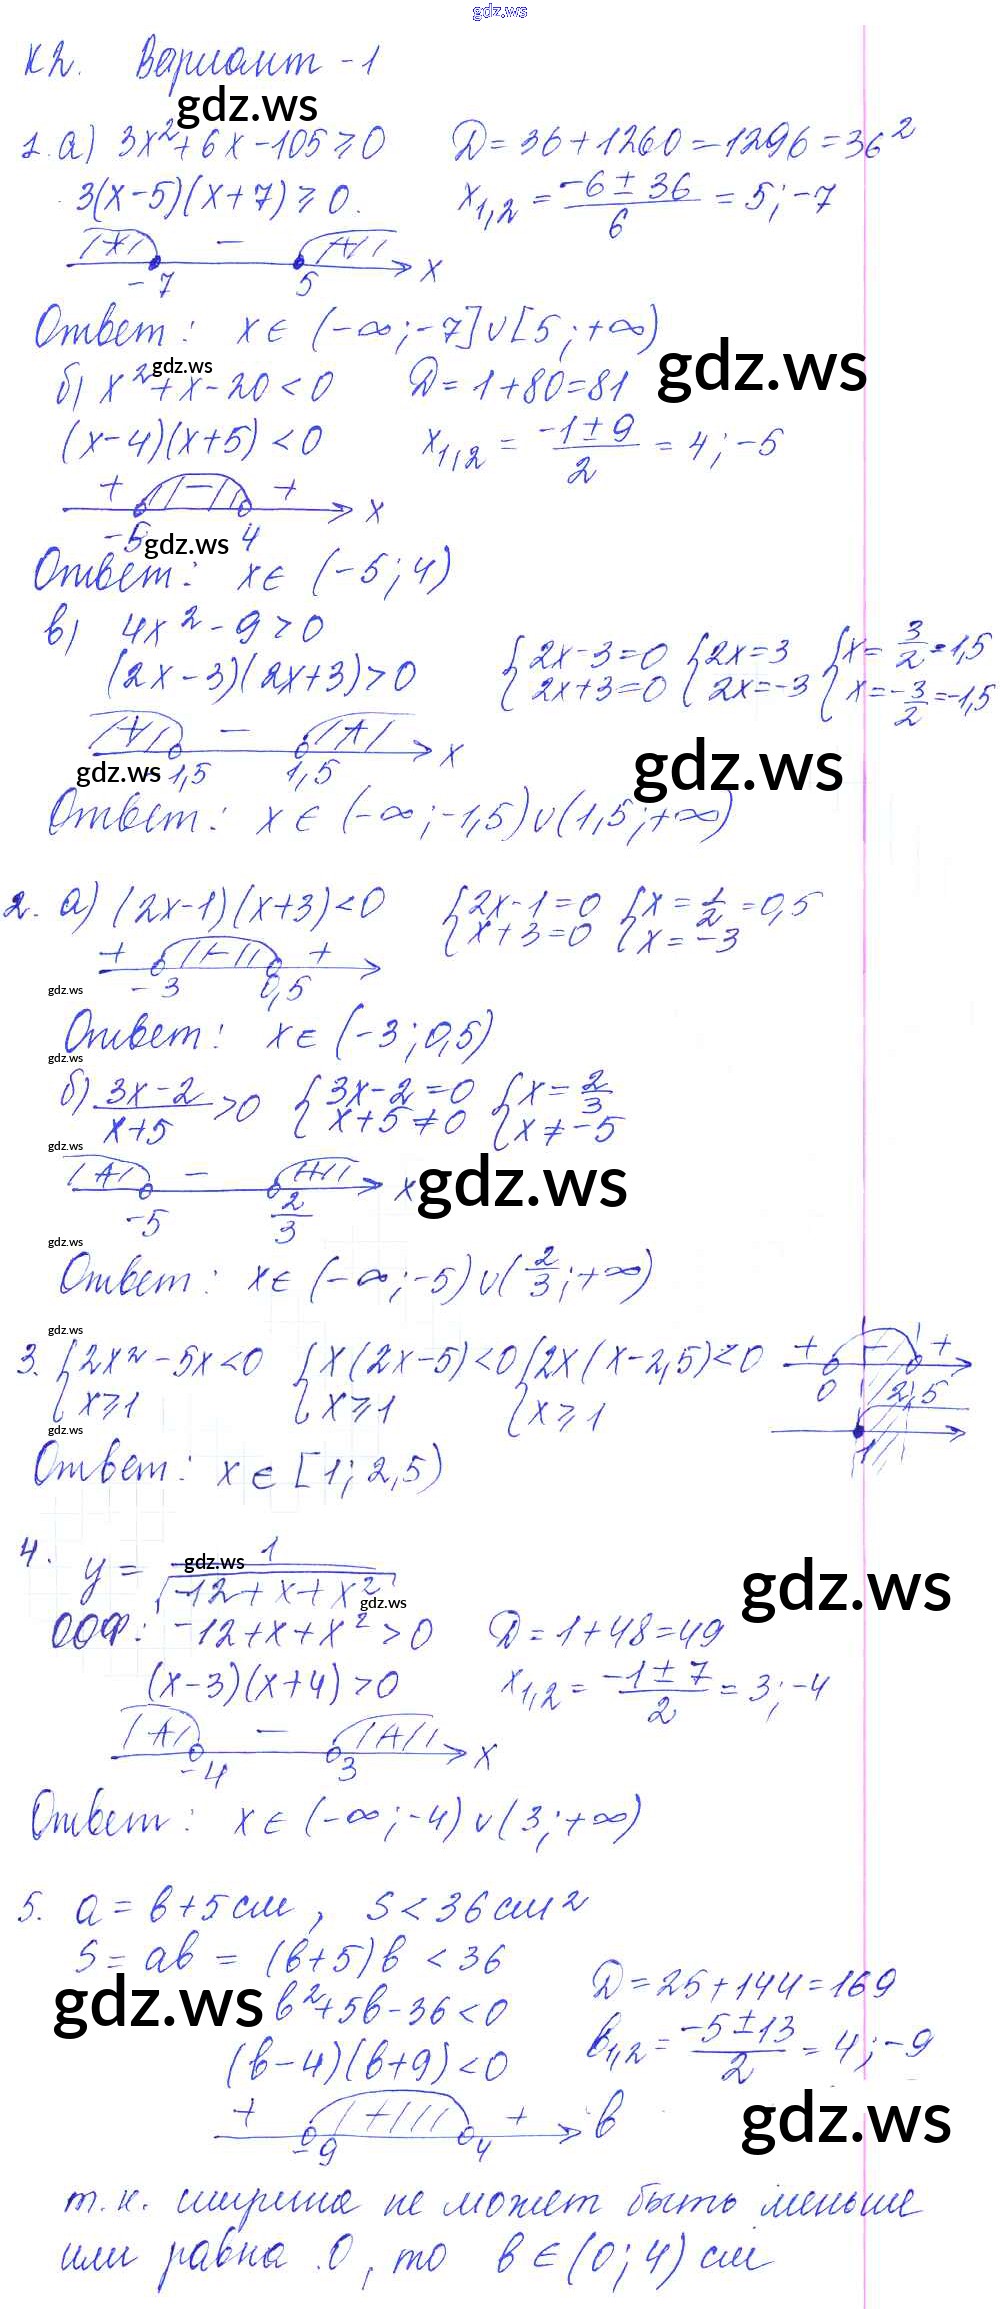 gdz.ws
К2. Вариант - 1
gdz.ws
1. а) 3x² + 6x - 105 ≥ 0 D = 36 + 1260 = 1296 = 36²
3(x-5)(x+7) ≥ 0. x₁,₂ = (-6 ± 36)/6 = 5; -7
+ - + -7 5 x
Ответ: x ∈ (-∞; -7] ∪ [5; +∞)
gdz.ws gdz.ws
б) x² + x - 20 < 0 D = 1 + 80 = 81
(x-4)(x+5) < 0 x₁,₂ = (-1 ± 9)/2 = 4; -5
+ - + -5 4 x
gdz.ws
Ответ: x ∈ (-5; 4)
в) 4x² - 9 > 0
(2x-3)(2x+3) > 0 {2x-3=0 2x+3=0 {2x=3 2x=-3 {x=3/2=1,5 x=-3/2=-1,5
+ - + -1,5 1,5 x
gdz.ws gdz.ws
Ответ: x ∈ (-∞; -1,5) ∪ (1,5; +∞)
2. а) (2x-1)(x+3) < 0 {2x-1=0 x+3=0 {x=1/2=0,5 x=-3
+ - + -3 0,5
gdz.ws
Ответ: x ∈ (-3; 0,5)
gdz.ws
б) (3x-2)/(x+5) > 0 {3x-2=0 x+5≠0 {x=2/3 x≠-5
gdz.ws
+ - + -5 2/3 x
gdz.ws
gdz.ws
Ответ: x ∈ (-∞; -5) ∪ (2/3; +∞)
gdz.ws
3. {2x² - 5x < 0 x ≥ 1 {x(2x-5) < 0 x ≥ 1 {2x(x-2,5) < 0 x ≥ 1
+ - + 0 2,5
1
gdz.ws
Ответ: x ∈ [1; 2,5)
4. y = 1/√(-12+x+x²)
gdz.ws gdz.ws gdz.ws
ООФ: -12 + x + x² > 0 D = 1 + 48 = 49
(x-3)(x+4) > 0 x₁,₂ = (-1 ± 7)/2 = 3; -4
+ - + -4 3 x
Ответ: x ∈ (-∞; -4) ∪ (3; +∞)
5. a = b + 5 см, S < 36 см²
S = ab = (b+5)b < 36
gdz.ws
b² + 5b - 36 < 0 D = 25 + 144 = 169
(b-4)(b+9) < 0 b₁,₂ = (-5 ± 13)/2 = 4; -9
gdz.ws
+ + + -9 4 b
т.к. ширина не может быть меньше
или равна 0, то b ∈ (0; 4) см